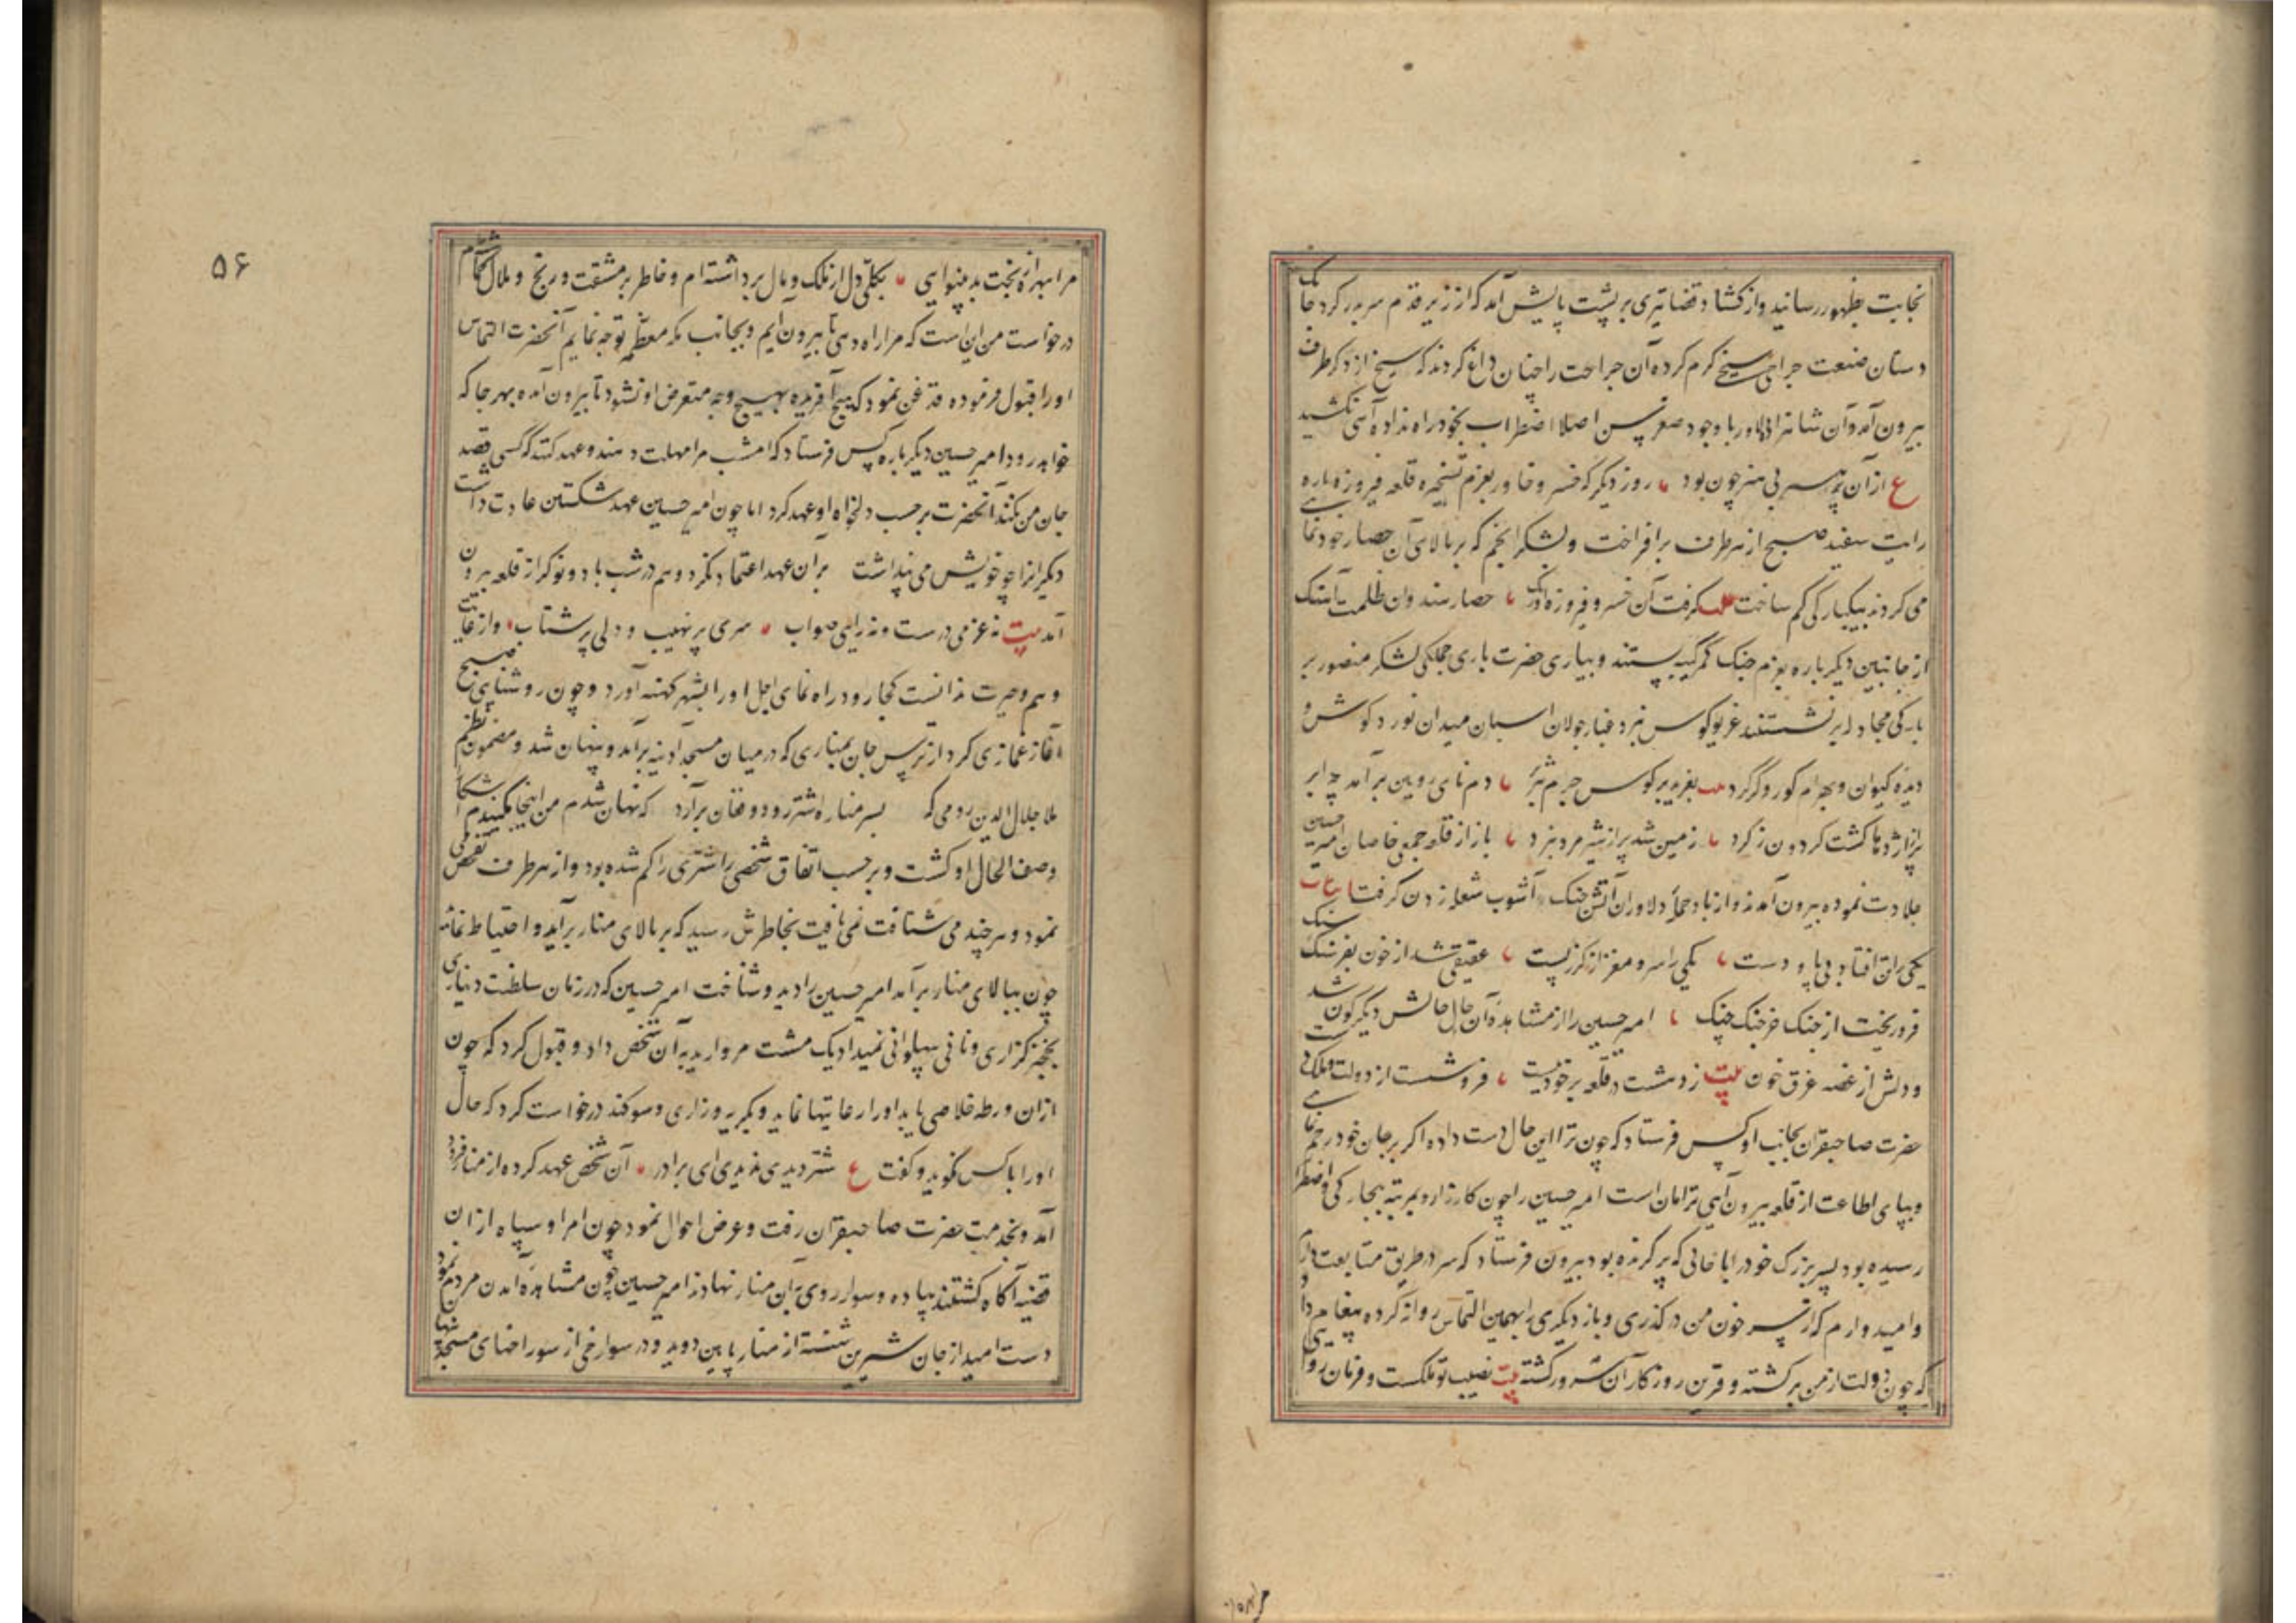 نجابت بظهور رسانید و از کشاد قضا تیری بر پشت پایش آمد که از زیر قدم سر بدر کرد چابک
دستان صنعت جراحی سیخ گرم کرده آن جراحت را چنان داغ کردند که سیخ از دگر طرف
بیرون آمد و آن شاهزاده دلاور با وجود صغر سن اصلا اضطراب بخود راه نداده آهی نکشید
ع از آن پدر پسر بی هنر چون بود روز دیگر که خسرو خاور بعزم تسخیر قلعه فیروزه باره
رایت سفید صبح از هر طرف برافراخت و لشکر انجم که بر بالای آن حصار خودنمایی
می کردند بیکبارگی کم ساخت گرفت آن خسرو فیروزه اورنک حصار هندوان ظلمت آهنک
از جانبین دیگر باره بعزم جنک کمر کینه بستند و بیاری حضرت باری جملگی لشکر منصور بر
بارگی مجادله بر نشستند غریو کوس نبرد و غبار جولان اسبان میدان نورد کوش و
دیده کیوان و بهرام کور و کر کرد بغرید بر کوس چرم هژبر دم نای رویین بر آمد به ابر
پر از اژدها کشت کردون ز کرد زمین شد پر از شیر مرد نبرد باز از قلعه جمعی خاصان امیر حسین
جلادت نموده بیرون آمدند و از باد حمله دلاوران آتش جنک و آشوب شعله زدن کرفت
یکی را تن افتاد بی پا و دست یکی را سر و مغز از کرز پست عقیقی شد از خون بفرسنک سنک
فرو ریخت از چنک خرچنک چنک امیر حسین را از مشاهده آن حال حالش دیگرگون شد
و دلش از غصه غرق خون بیت ز دهشت در قلعه بر خود ببست فرو شست از دولت و ملک دست
حضرت صاحبقران بجانب او کس فرستاد که چون ترا این حال دست داده اگر بر جان خود رحم نمایی
و بپای اطاعت از قلعه بیرون آیی ترا امان است امیر حسین را چون کار زار و بمرتبه بیچارگی و اضطرار
رسیده بود پسر بزرگ خود را با خانی که برکرده بود بیرون فرستاد که سر در طریق متابعت دارم
و امیدوارم که از سر خون من درگذری و باز دیگری را بهمین التماس روانه کرده پیغام داد
که چون دولت از من برگشته و قرین روزگار آن سرور گشته بیت نصیب تو ملکست و فرمان روایی
۵۶
مرا بهره از بخت بد بینوایی بکلی دل از ملک و مال برداشته ام و خاطر بر مشقت و رنج و ملال گماشته ام
درخواست من این است که مرا راه دهی تا بیرون آیم و بجانب مکه معظمه توجه نمایم آنحضرت التماس
او را قبول فرموده قدغن نمود که هیچ آفریده بهیچ وجه متعرض او نشود تا بیرون آمده بهر جا که
خواهد رود امیر حسین دیگر باره کس فرستاد که امشب مرا مهلت دهند و عهد کنند که کسی قصد
جان من نکند آنحضرت بر حسب دلخواه او عهد کرد اما چون امیر حسین عهد شکستن عادت داشت
دیگرانرا چو خویش می پنداشت بر آن عهد اعتماد نکرد و هم در شب با دو نوکر از قلعه بیرون
آمد بیت نه عزمی درست و نه رایی صواب سری پر نهیب و دلی پر شتاب و از غایت
وهم و حیرت ندانست کجا رود راه نمای اجل او را بشهر کهنه آورد و چون روشنایی صبح
آغاز غمازی کرد از ترس جان بمناری که در میان مسجد آدینه برآمد و پنهان شد و مضمون نظم
ملا جلال الدین رومی که بسر مناره اشتر رود و فغان برآرد که نهان شدم من اینجا مکنیدم آشکارا
وصف الحال او کشت و بر حسب اتفاق شخصی را شتری راکم شده بود و از هر طرف تفحص می
نمود و هر چند می شتافت نمی یافت بخاطرش رسید که بر بالای منار برآید و احتیاط نماید
چون ببالای منار برآمد امیر حسین را دید و شناخت امیر حسین که در زمان سلطنت دیناری
بخنجر گزاری و نانی بپهلوانی نمیداد یک مشت مروارید به آن شخص داد و قبول کرد که چون
از ان ورطه خلاصی یابد او را رعایتها نماید و بگریه و زاری و سوکند درخواست کرد که حال
او را با کس نگوید و گفت ع شتر دیدی ندیدی ای برادر آن شخص عهد کرده از منار فرود
آمد و بخدمت حضرت صاحبقران رفت و عرض احوال نمود چون امرا و سپاه از ان
قضیه آگاه گشتند پیاده و سوار روی به آن منار نهادند امیر حسین چون مشاهده آمدن مردم نمود
دست امید از جان شیرین شسته از منار پایین دوید و در سوراخی از سوراخهای مسجد پنهان